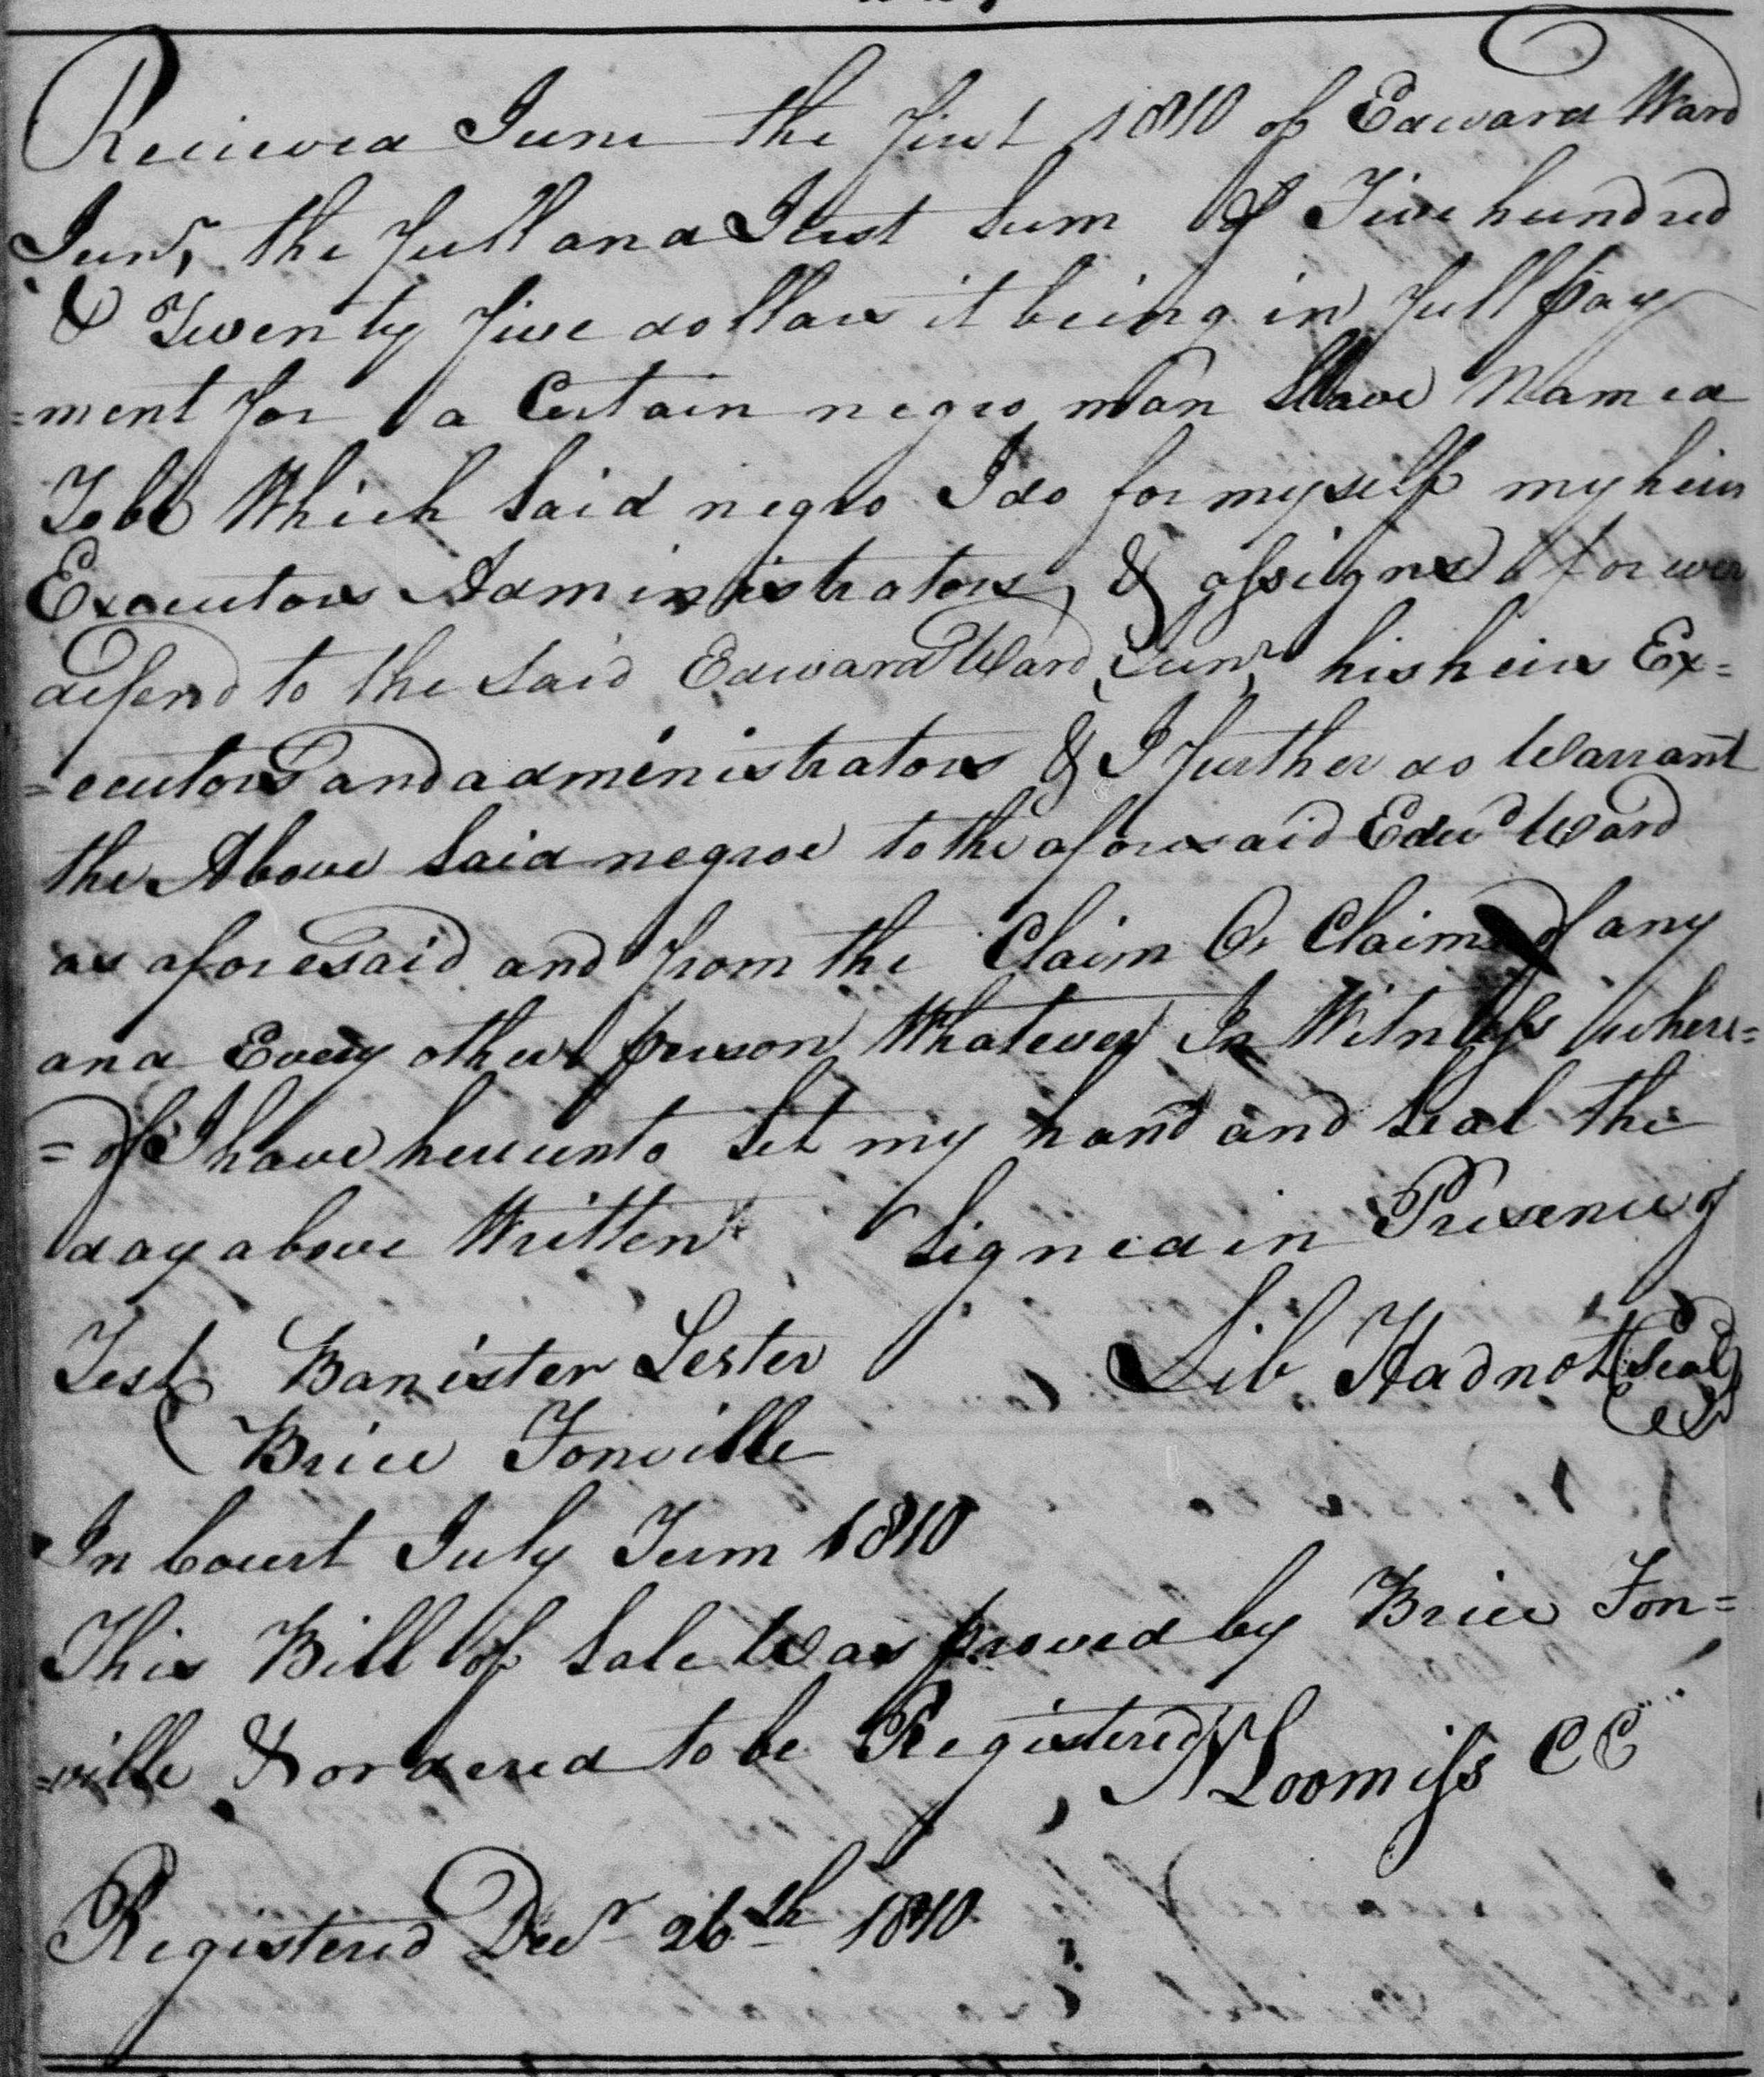 Recieved June the first 1810 of Edward Ward
Junr, the full and Just sum of Five hundred
& Twenty five dollars it being in full pay
=ment for a Certain negro man Slave Named
Tobe Which Said negro I do for myself my heirs
Executors Administrators, & assigns forever
defend to the Said Edward Ward Junr his heirs Ex=
=ecutors and administrators & I further do Warrant
the Above Said negroe to the aforesaid Edwd Ward
as aforesaid and from the Claim Or Claims of any
and Every other person Whatever In Witness where=
=of I have hereunto Set my hand and Seal the
day above Written Signed in Presence of
Test Banister Lester Lib Hadnot (Seal)
Brice Fonville
In Court July Term 1810
This Bill of Sale Was proved by Brice Fon=
=ville & ordered to be Registered N Loomiss CC
Registered Decr 26th 1810